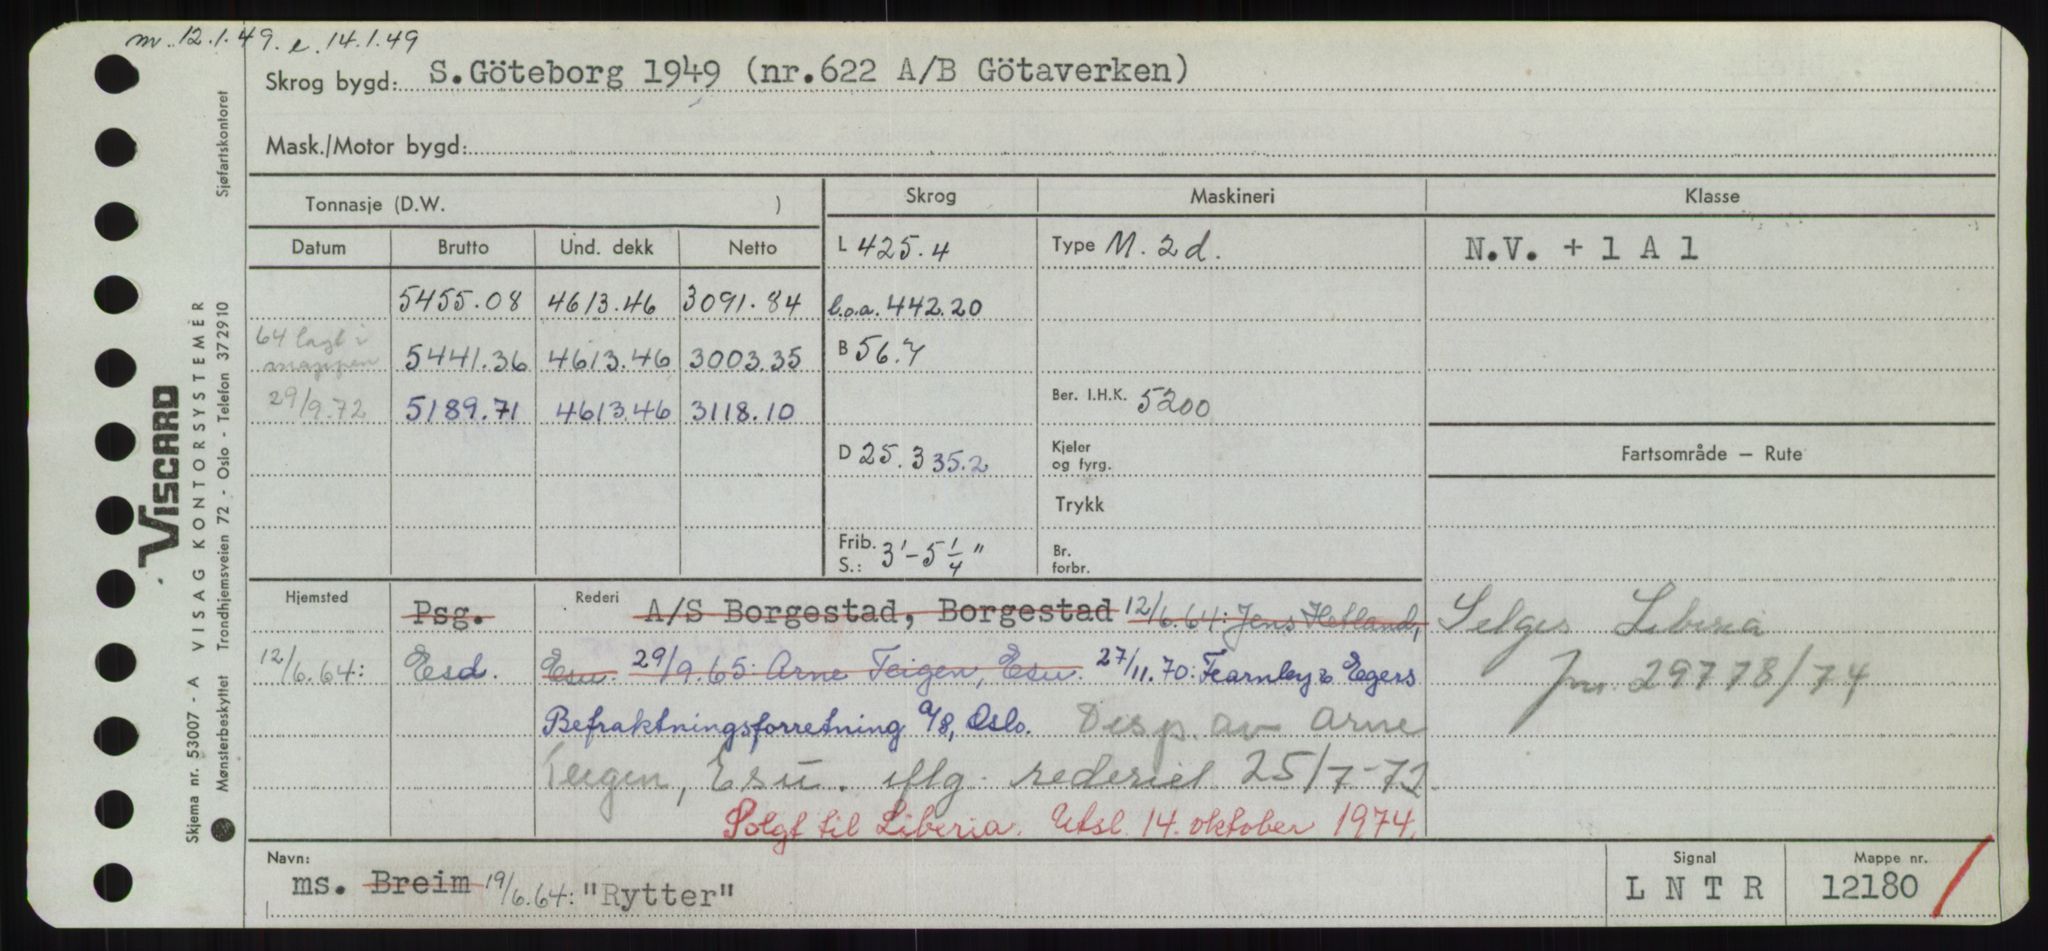 m. 12.1.49. e. 14.1.49
Skrog bygd: S.Göteborg 1949 (nr.622 A/B Götaverken)
Mask./Motor bygd:
Tonnasje (D.W. )
Skrog
Maskineri
Klasse
Datum Brutto Und. dekk Netto
L 425.4
Type M. 2d.
N.V. + 1 A 1
5455.08 4613.46 3091.84
l.o.a. 442.20
64 lagt i mappen 5441.36 4613.46 3003.35
B 56.7
29/9.72 5189.71 4613.46 3118.10
Ber. I.H.K. 5200
D 25.3 35.2
Kjeler og fyrg.
Fartsområde – Rute
Trykk
Frib. S.: 3'-5 1/4"
Br. forbr.
Hjemsted Psg.
Rederi A/S Borgestad, Borgestad 12/6.64: Jens Hetland,
12/6.64: Esd.
Esu. 29/9.65: Arne Teigen, Esu. 27/11.70: Fearnley & Egers
Befraktningsforretning a/s, Oslo. Disp. av Arne
Teigen, Esu. iflg. rederiet 25/7-72
Solgt til Liberia. Utsl. 14. oktober 1974.
Selges Liberia
jnr. 29778/74
Navn: ms. Breim 19/6.64: "Rytter"
Signal L N T R
Mappe nr. 12180
VISCARD
VISAG KONTORSYSTEMER
Skjema nr. 53007 - A
Mønsterbeskyttet Trondhjemsveien 72 - Oslo - Telefon 372910 Sjøfartskontoret